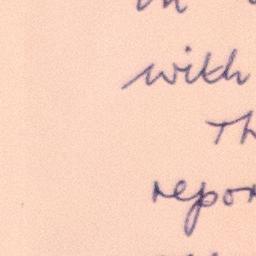 in
with
Th
repor